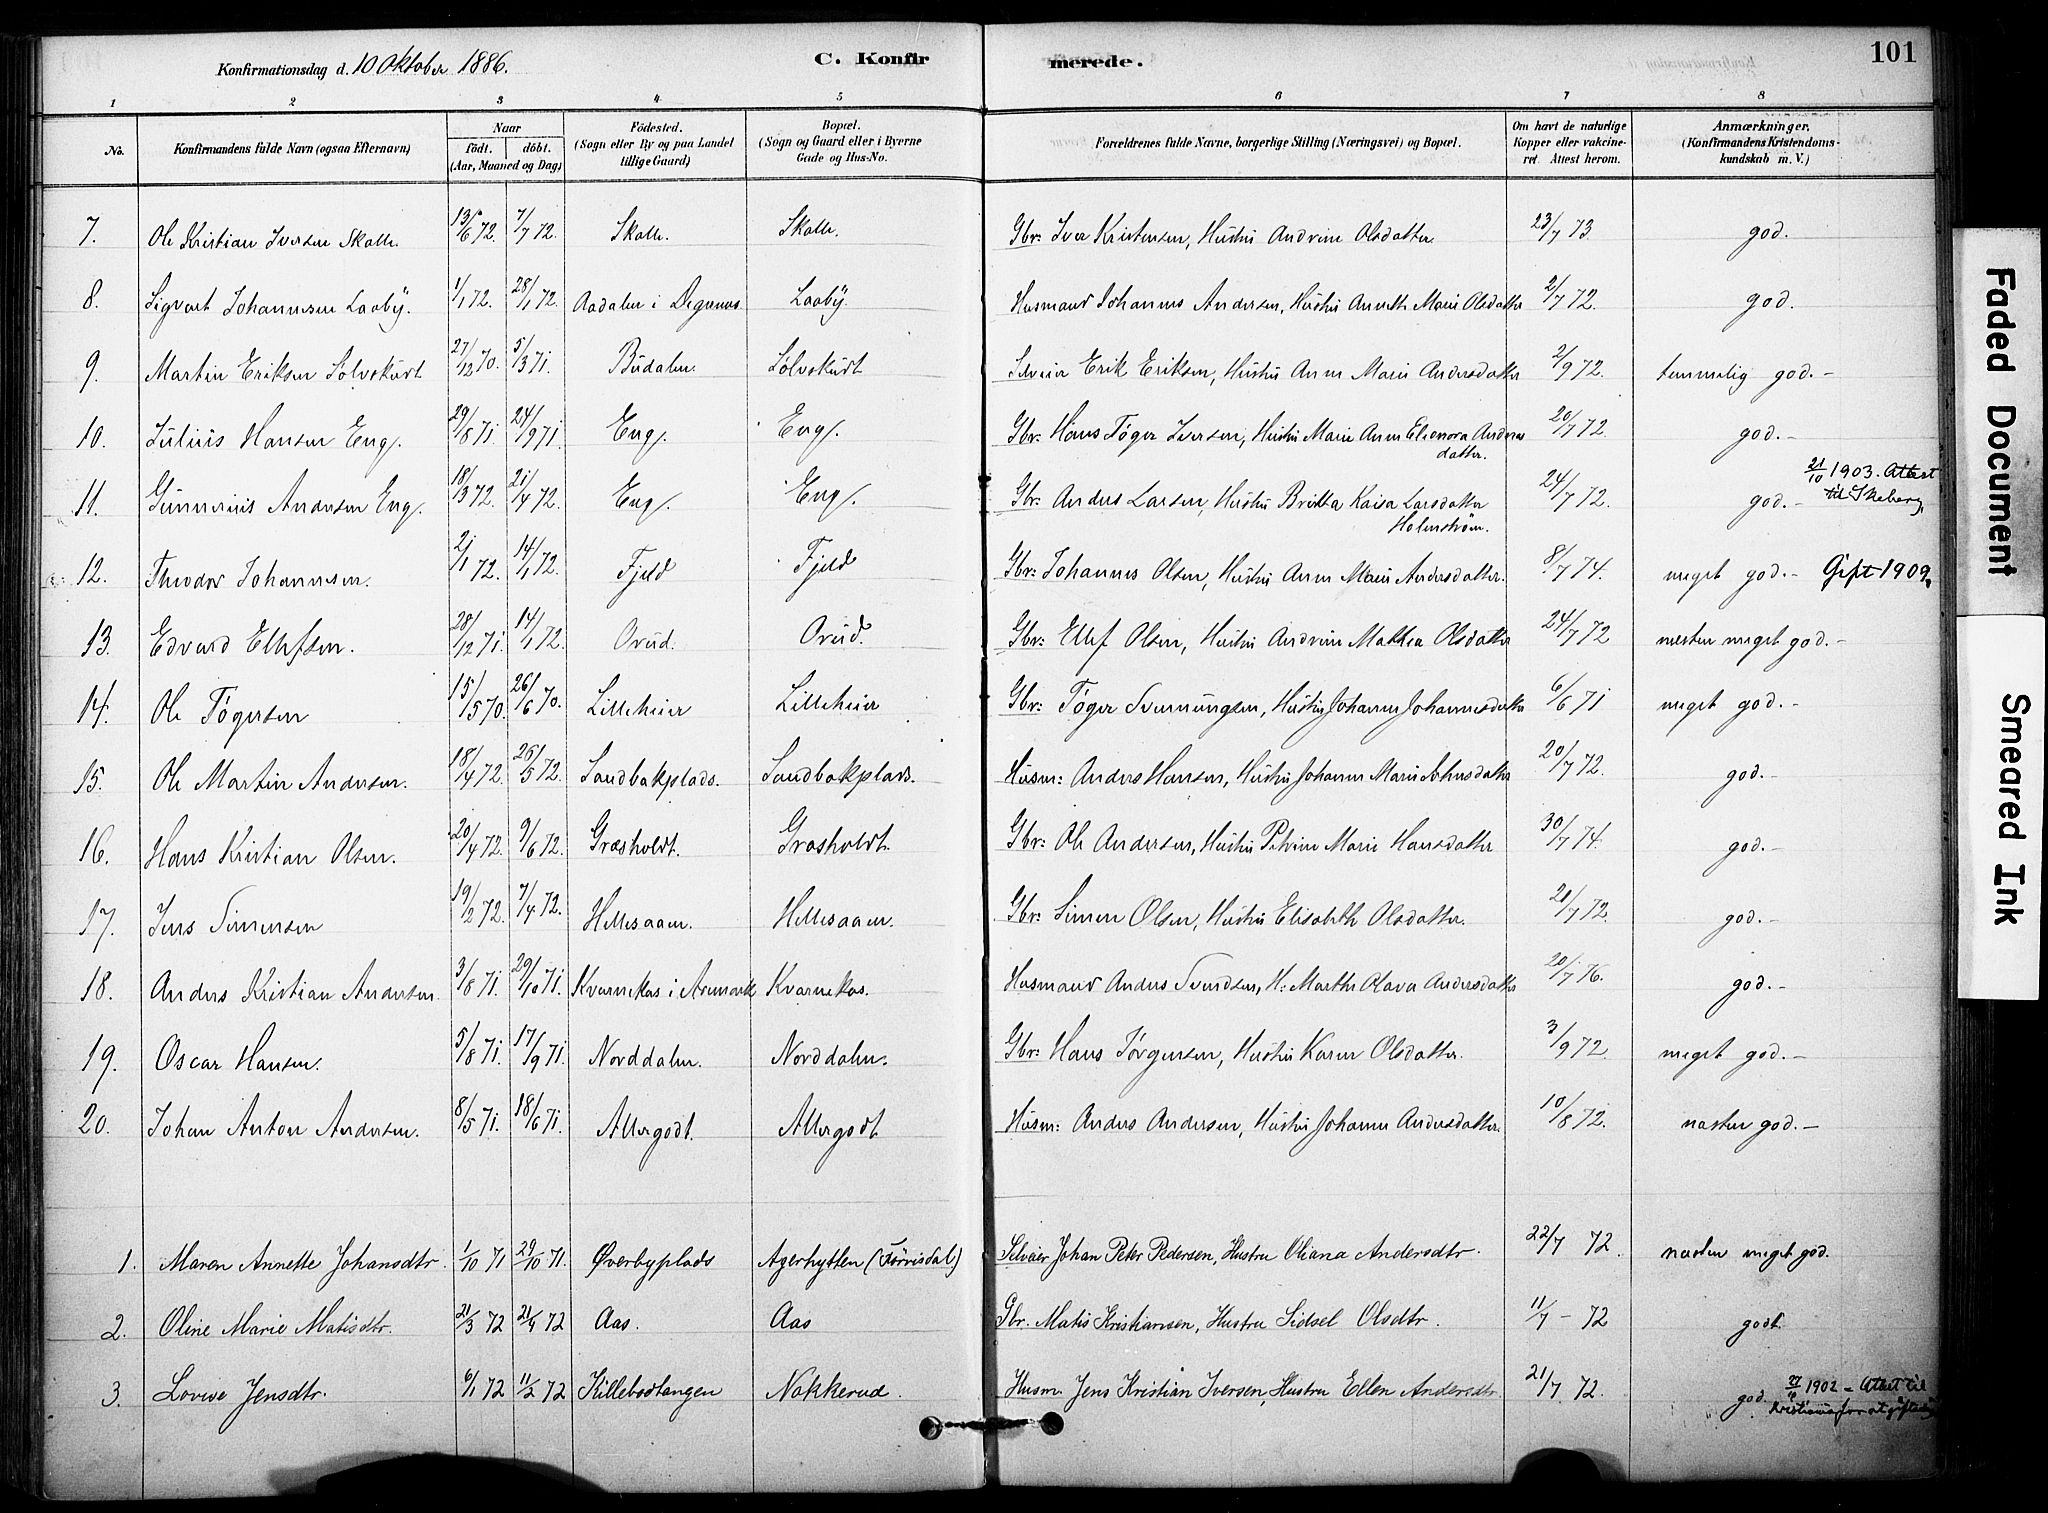 Konfirmationsdag d. 10 Oktober 1886.
C. Konfirmerede.
101
1 2 3 4 5 6 7 8
No.
Konfirmandens fulde Navn (ogsaa Efternavn)
Naar
født. døbt.
(Aar, Maaned og Dag)
Födested.
(Sogn eller By og paa Landet
tillige Gaard)
Bopæl.
(Sogn og Gaard eller i Byerne
Gade og Hus-No.
Forældrenes fulde Navne, borgerlige Stilling (Næringsvei) og Bopæl.
Om havt de naturlige
Kopper eller vakcine-
ret. Attest herom.
Anmærkninger.
(Konfirmandens Kristendoms-
kundskab m. V.)
7. Ole Kristian Iversen Skolle. 13/6 72. 7/7 72. Skolle. Skolle. Gbr: Iver Kristensen, Hustru Andrine Olsdatter. 23/7 73. god.
8. Sigvart Johannesen Laaby. 1/1 72. 28/1 72. Aadalen i Degernes Laaby. Husmand Johannes Andersen, Hustru Anneth Marie Olsdatter 2/7 72. god.
9. Martin Eriksen Sølvskudt 27/12 70. 5/3 71. Budalen. Sølvskudt Selveier Erik Eriksen, Hustru Anne Marie Andersdatter 2/9 72. temmelig god.-
10. Julius Hansen Eng. 29/8 71. 24/9 71. Eng. Eng. Gbr: Hans Töger Iversen, Hustru Marie Anne Elenora Anders
datter. 20/7 72. god.-
11. Gunnerius Andersen Eng. 18/3 72. 21/4 72. Eng. Eng. Gbr: Anders Larsen, Hustru Britta Kaisa Larsdatter
Holmström. 24/7 72. god.- 21/10 1903. Attest
til Skeberg
12. Theodor Johannesen. 2/1 72. 14/1 72. Fjeld Fjeld Gbr: Johannes Olsen, Hustru Anne Marie Andersdatter. 8/7 74. meget god.- Gift 1909.
13. Edvard Ellefsen. 28/12 71. 14/1 72. Orud. Orud. Gbr: Ellef Olsen, Hustru Andrine Mathea Olsdatter 24/7 72 næsten meget god.-
14. Ole Tögersen 15/5 70. 26/6 70. Lilleheier Lilleheier Gbr: Töger Svenungsen, Hustru Johanne Johannesdatter 6/6 71 meget god.-
15. Ole Martin Andersen. 18/4 72. 26/5 72. Sandbakplads. Sandbakplads. Husm: Anders Hansen, Hustru Johanne Marie Johnsdatter 20/7 72. god.-
16. Hans Kristian Olsen. 20/4 72. 9/6 72. Græsholdt. Græsholdt. Gbr: Ole Andersen, Hustru Petrine Marie Hansdatter 30/7 74. god.-
17. Jens Simensen 19/2 72. 7/4 72. Hellesaaen. Hellesaaen. Gbr: Simen Olsen, Hustru Elisabeth Olsdatter. 20/7 72. god.-
18. Anders Kristian Andersen. 3/8 71. 29/10 71. Kvarnekas i Aremark Kvarnekas. Husmand Anders Svendsen, H: Marthe Olava Andersdatter 20/7 76. god.-
19. Oscar Hansen. 5/8 71. 17/9 71. Norddalen. Norddalen. Gbr: Hans Jörgensen, Hustru Karen Olsdatter. 3/9 72. meget god.-
20. Johan Anton Andersen. 8/5 71. 18/6 71. Allergodt. Allergodt Husm: Anders Andersen, Hustru Johanne Andersdatter. 10/8 72. næsten god.-
1. Maren Annette Johansdtr. 1/10 71 29/10 71. Øverbyplads Agerhytten (Törrisdal) Selveier Johan Peter Pedersen, Hustru Oliana Andersdtr. 22/7 72. næsten meget god.
2. Oline Marie Matisdtr. 21/3 72 21/4 72 Aas. Aas Gbr. Matis Kristiansen, Hustru Sidsel Olsdtr. 11/7 - 72 godt.
3. Lovise Jensdtr. 6/1 72 11/2 72 Killebotangen Nakkerud. Husm. Jens Kristian Iversen, Hustru Ellen Andersdtr. 21/7 72. god. 1902 - Attest til
Kristiania for at giftes
Faded Document
Smeared Ink